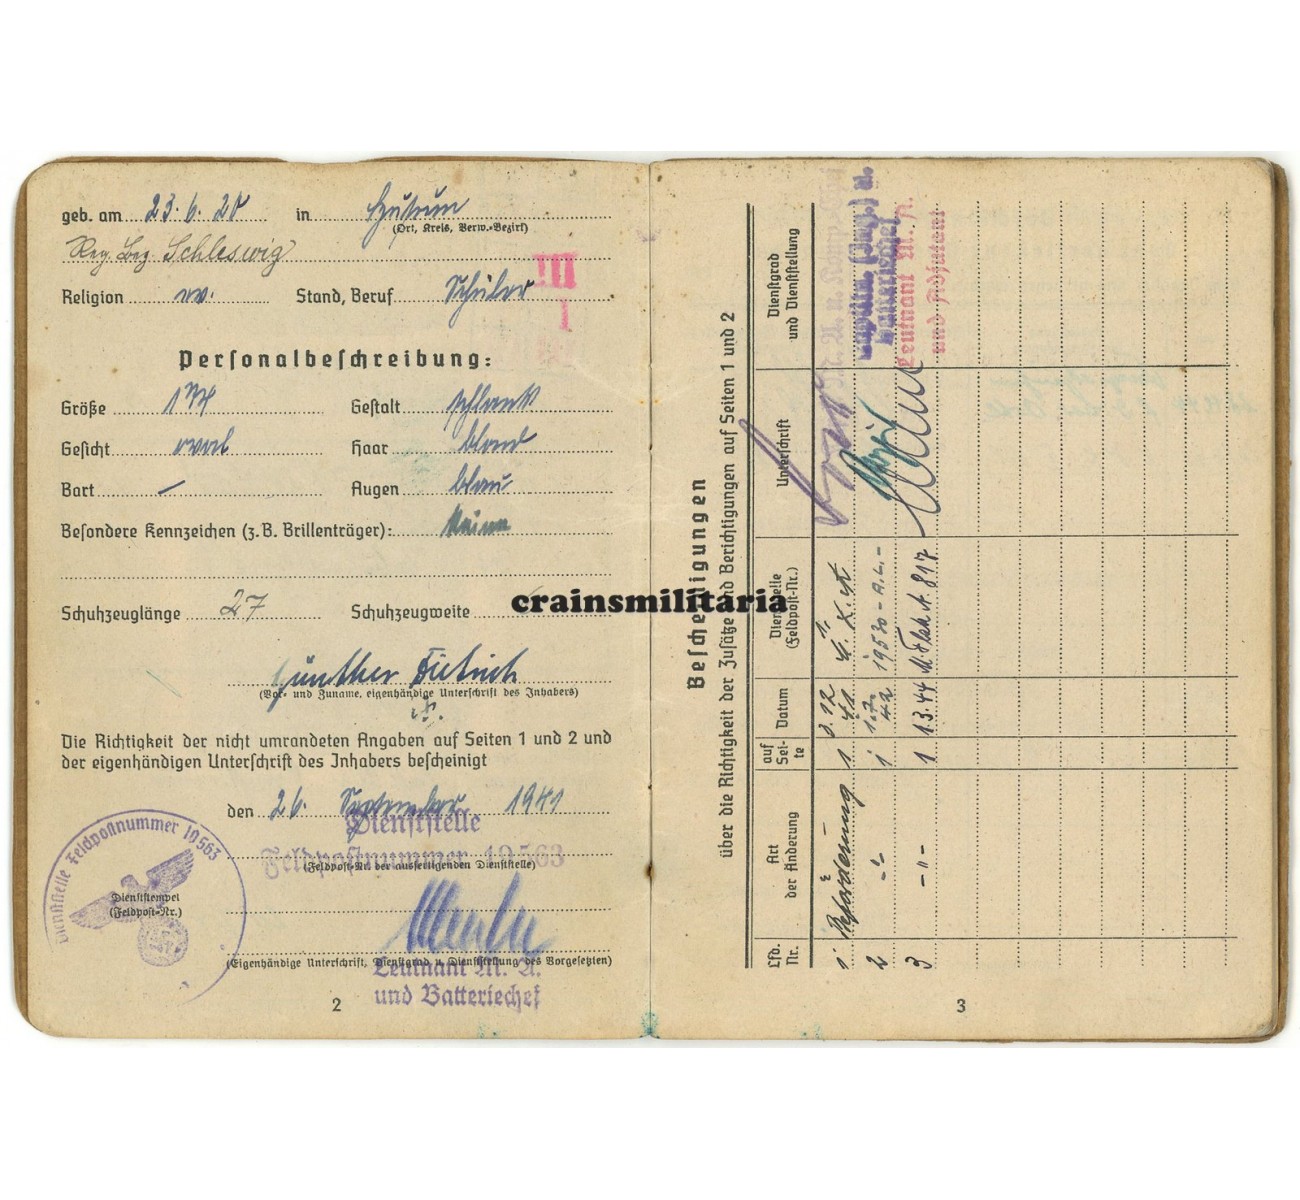 geb. am 23. 6. 20 in Husum
(Ort, Kreis, Verw.-Bezirk)
Reg. Bez. Schleswig
Religion ev. Stand, Beruf Schüler
III
I
Personalbeschreibung:
Größe Gestalt schlank
Gesicht oval Haar blond
Bart — Augen blau
Besondere Kennzeichen (z. B. Brillenträger): keine
Schuhzeuglänge 27 Schuhzeugweite
crainsmilitaria
Günther Dietrich
(Vor- und Zuname, eigenhändige Unterschrift des Inhabers)
Die Richtigkeit der nicht umrandeten Angaben auf Seiten 1 und 2 und
der eigenhändigen Unterschrift des Inhabers bescheinigt
den 26. September 1941
Dienststelle
Feldpostnummer 19563
(Feldpost-Nr. der ausfertigenden Dienststelle)
Dienststelle Feldpostnummer 19563
Dienststempel
(Feldpost-Nr.)
(Eigenhändige Unterschrift, Dienstgrad u. Dienststellung des Vorgesetzten)
Leutnant M. A.
und Batteriechef
2
Bescheinigungen
über die Richtigkeit der Zusätze und Berichtigungen auf Seiten 1 und 2
Lfd. Nr. Art der Änderung auf Seite Datum Dienststelle (Feldpost-Nr.) Unterschrift Dienstgrad und Dienststellung
1 Beförderung 1
2 -"- 1 1.7. 42 19530 -A.L.-
Batteriechef
3 -"- 1 1.3.44 M. Flak A. 817 Leutnant M. A. und Adjutant
3